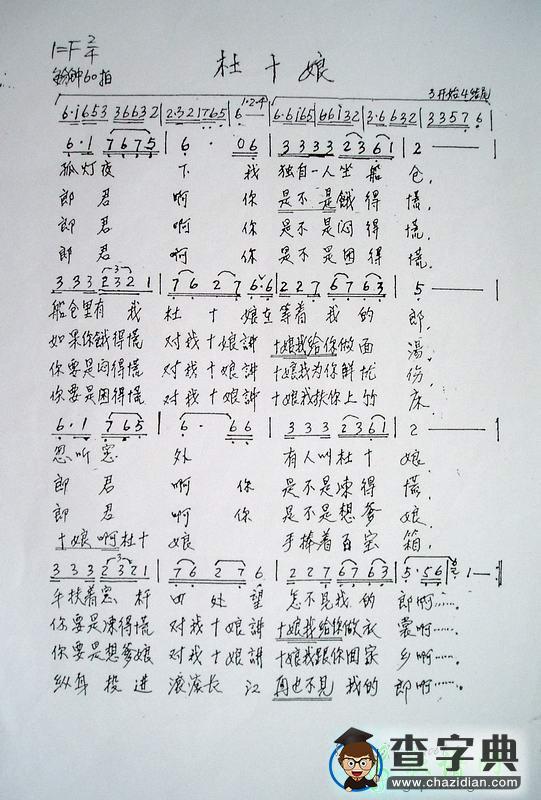 1=F 2/4
杜十娘
每分钟60拍
3开始4结尾
1·2·4·
6·i653 36632 | 2·321765 | 6 —— | 6·6i65 | 66i32 | 3·6632 | 33576 |
6·1 7675 | 6· 06 | 3333 2361 | 2 —— |
孤灯夜 下 我 独自一人坐船 仓,
郎君 啊 你 是不是餓得 慌,
郎君 啊 你 是不是闷得 慌,
郎君 啊 你 是不是困得 慌,
333 2321 | 76 27 6·6 | 227 6763 | 5 —— |
船仓里有我 杜十娘在等着我的 郎,
如果你餓得慌 对我十娘讲 十娘我给你做面 湯,
你要是闷得慌 对我十娘讲 十娘我为你解忧 伤,
你要是困得慌 对我十娘讲 十娘我扶你上竹 床,
6·1 765 | 6· 66 | 333 2361 | 2 —— |
忽听窗 外 有人叫杜十 娘,
郎君 啊 你 是不是凍得 慌,
郎君 啊 你 是不是想爹 娘,
十娘啊杜十 娘 手捧着百宝 箱,
333 2321 | 76 27 6 | 227 6763 | 5·56 1 — :||
手扶着窗杆 四处望 怎不见我的 郎啊……,
你要是凍得慌 对我十娘讲 十娘我给你做衣 裳啊……,
你要是想爹娘 对我十娘讲 十娘我跟你回家 乡啊……,
纵身投进 滚滚长江 再也不见我的 郎啊……,
查字典
www.chazidian.com